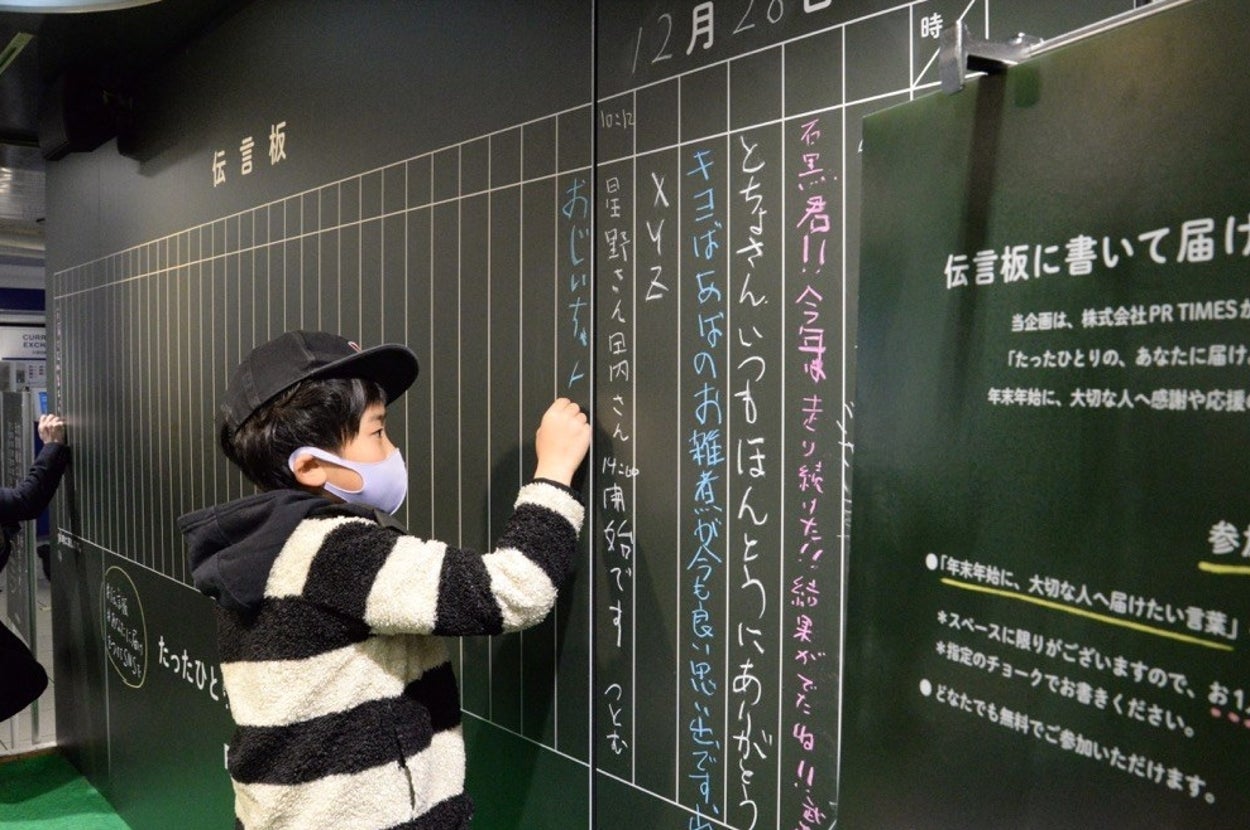 12月28日
時
伝言板
石黒君!! 今年は走り続けた!! 結果がでたね!!
とちょさん、いつもほんとうにありがとう
キヨばぁばのお雑煮が今も良い思い出です。
XYZ
10:12
星野さん田内さん 14:00開始です つとむ
おじいちゃん
伝言板に書いて届け
当企画は、株式会社PR TIMESか
「たったひとりの、あなたに届け
年末年始に、大切な人へ感謝や応援
参加
●「年末年始に、大切な人へ届けたい言葉」
*スペースに限りがございますので、お1
*指定のチョークでお書きください。
●どなたでも無料でご参加いただけます。
たったひと
CURR
EXCH